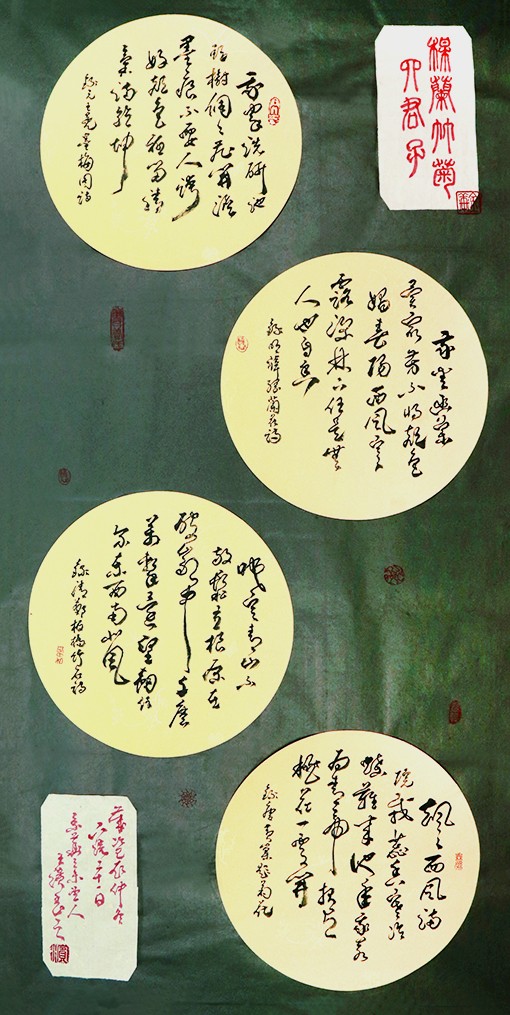 楳蘭竹菊
四君子
我家洗研池
頭樹個個花開淡
墨痕不要人誇
好顏色祗留清
氣滿乾坤
錄元王冕墨梅圖詩
我愛幽蘭
異眾芳不將顏色
媚春陽西風寒
露深林下任是無
人也自香
錄明薛網蘭花詩
咬定青山不
放鬆立根原在
破巖中千磨
萬擊還堅韌任
爾東西南北風
錄清鄭板橋竹石詩
颯颯西風滿
院栽蕊寒香冷
蝶難來他年我若
為青帝報與
桃花一處開
錄唐黃巢題菊花
仲冬
二十一日